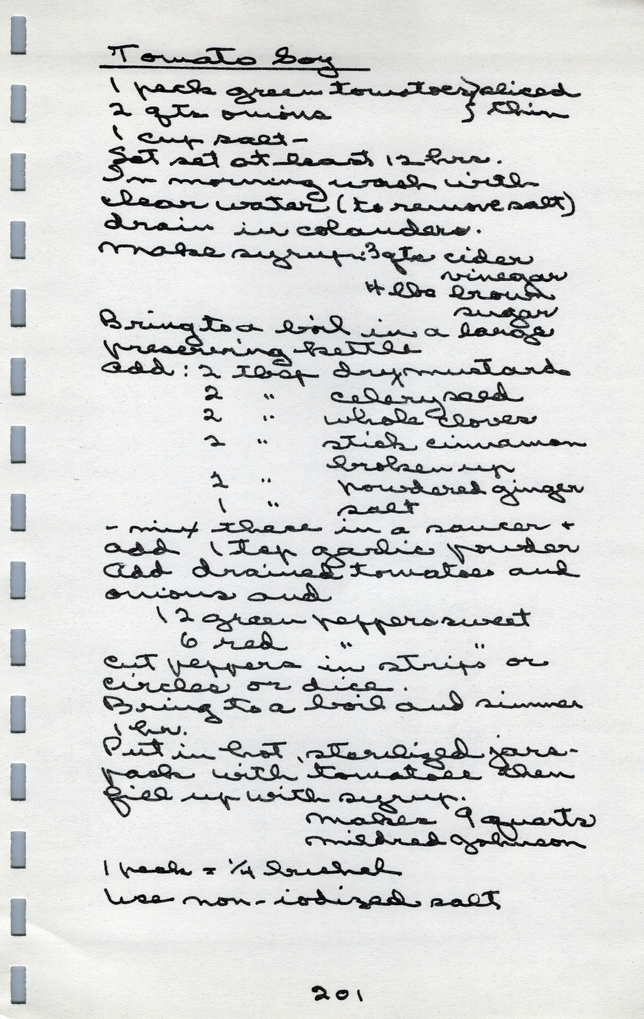 Tomato Soy
1 peck green tomatoes } sliced
2 qts onions } thin
1 cup salt -
Let set at least 12 hrs.
In morning wash with
clear water (to remove salt)
drain in colanders.
Make syrup: 3 qts cider
vinegar
4 lbs brown
sugar
Bring to a boil in a large
preserving kettle
Add: 2 tbsp dry mustard
2 " celery seed
2 " whole cloves
2 " stick cinnamon
broken up
2 " powdered ginger
1 " salt
- mix these in a saucer +
add 1 tsp garlic powder
Add drained tomatoes and
onions and
12 green peppers sweet
6 red " "
Cut peppers in strips or
circles or dice.
Bring to a boil and simmer
1 hr.
Put in hot, sterilized jars -
pack with tomatoes then
fill up with syrup.
Makes 9 quarts
Mildred Johnson
1 peck = 1/4 bushel
Use non-iodized salt
201